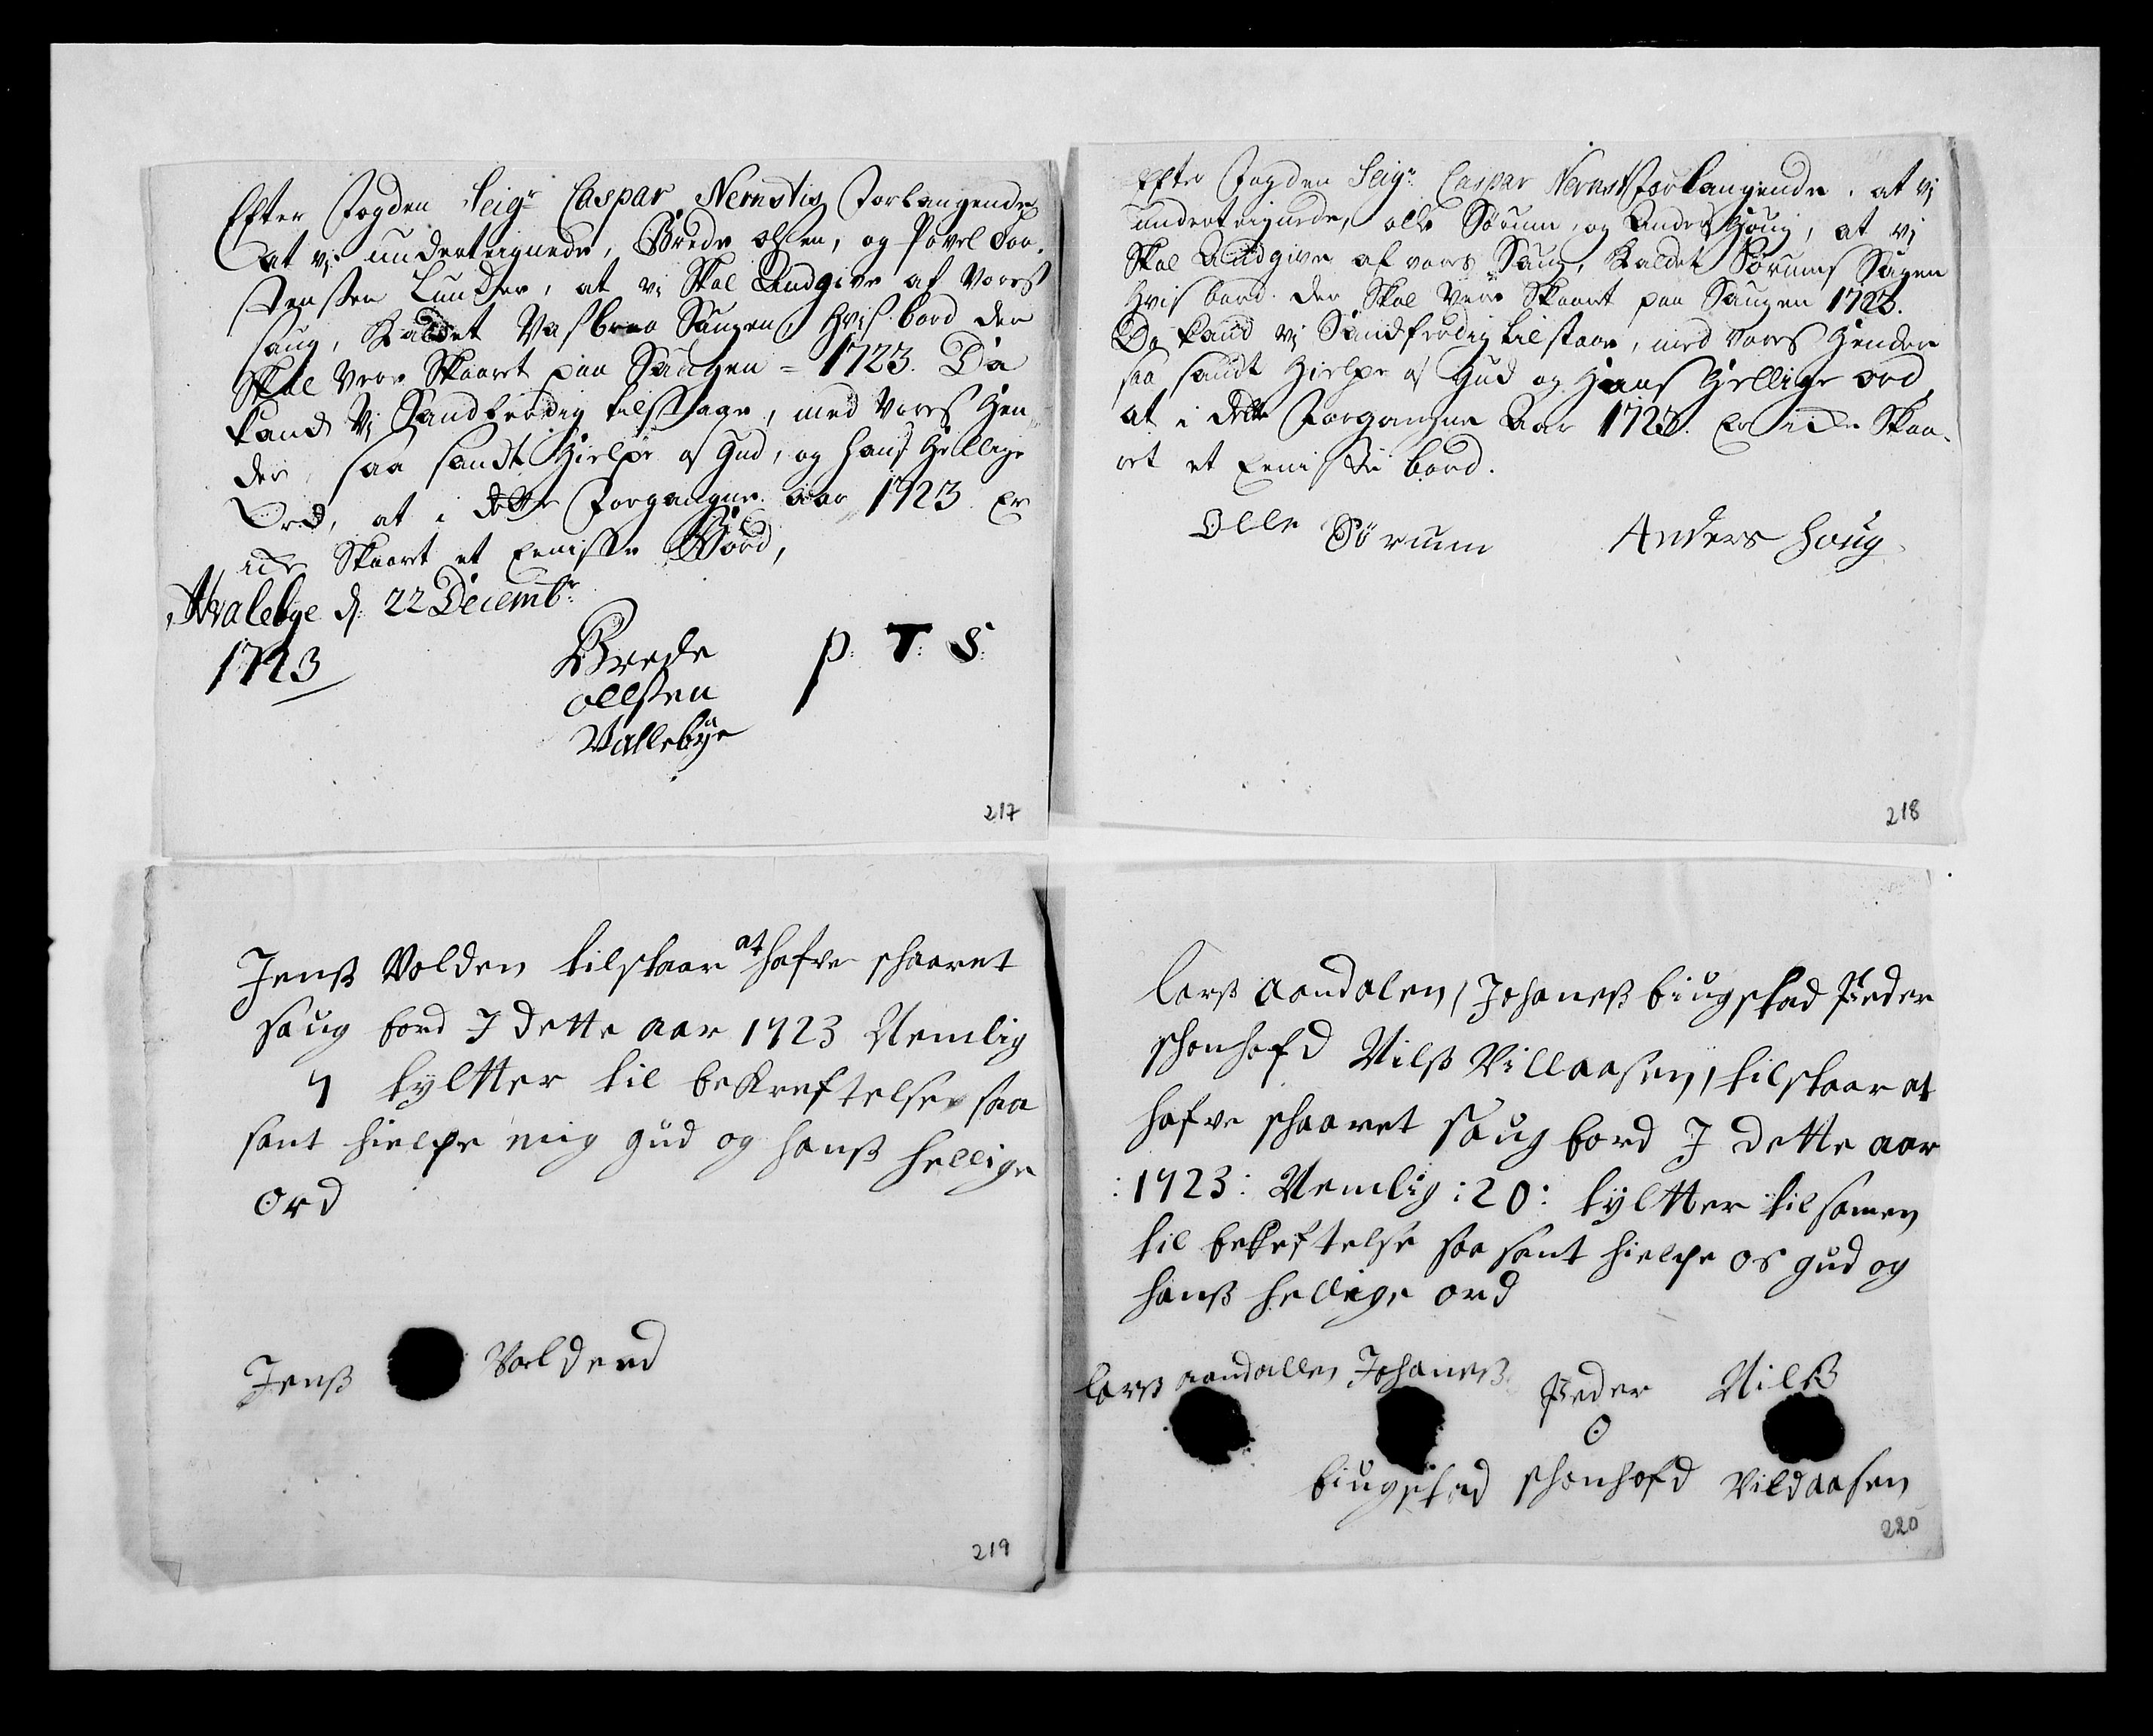 Efter Fogden Seigr Caspar Nernstis Forlangende
at vi underteignede, Brede olsen, og Povel Tor-
stensen Lunder, at vi Skal Andgive af Vores
saug, Kaldet Vasbraa Saugen, Hvis bord der
Skal Vere Skaaret paa Saugen = 1723. Da
kand Vi Sandferdig tilstaae, med Vores Hen-
der, saa sandt Hielpe os Gud, og hans Hellige
Ord, at i dette Forgangne aar 1723 er
icke Skaaret et eeniste Bord,
Walebye d: 22 Decembr
1723
Brede
ollsen
Vallebye
P: T: S:
217
Efter Fogden Seigr Caspar Nernst Forlangende, at vi
underteignede, olle Sörum, og Anders Houg, at vi
Skal Andgive af vores Saug, Kaldet Sörums Sagen
Hvis bord der Skal Vere Skaaret paa Saugen 1723.
Da kand vi Sandferdig tilstaae, med Vores Hender
saa sandt Hielpe os Gud og Hans Hellige ord,
at i dette Forgangne Aar 1723. er icke Skaa-
ret et eeniste bord.
Olle Sörum Anders Houg
218
Jenß Volden tilstaar at hafve schaaret
saug bord I dette aar 1723 Nemlig
7 tyltter til bekreftelse saa
sant hielpe mig gud og hanß hellige
ord
Jenß Volden
219
larß aandalen, Johaneß biugstad Peder
schonhofd Nilß Villaasen, tilstaar at
hafve schaaret saug bord I dette aar
:1723: Nemlig :20: tyltter tilsamen
til bekeftelse saa sant hielpe os gud og
hanß hellige ord
larß aandallen Johaneß Peder Nilß
biugstad schonhofd Vildaasen
220